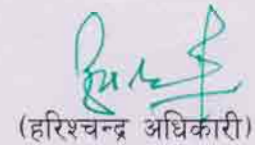 (हरिश्चन्द्र अधिकारी)